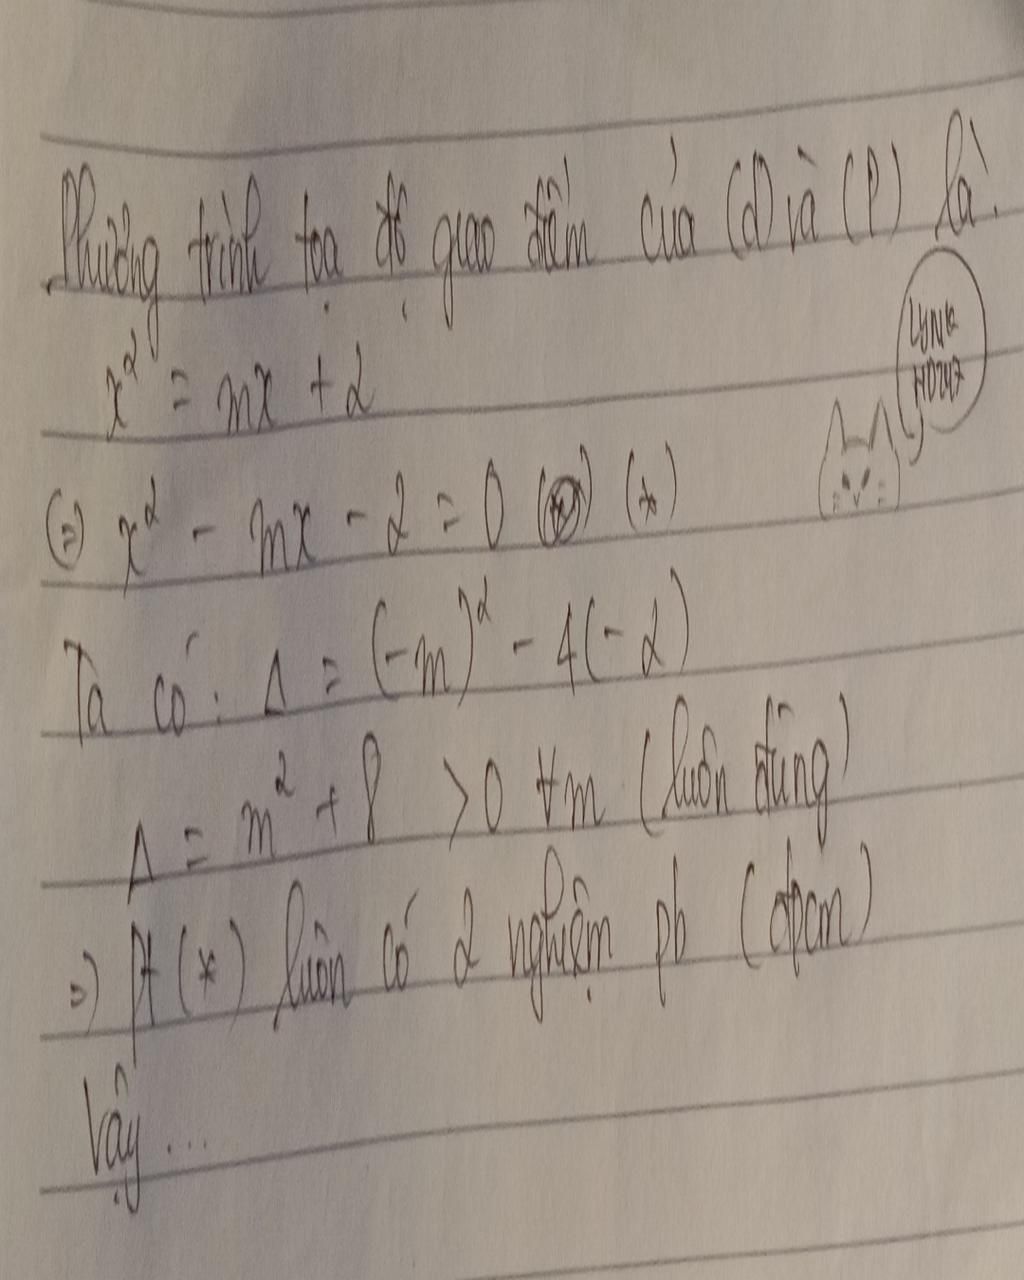 Phương trình tọa độ giao điểm của (d) và (P) là:
x² = mx + 2
LYNK
HD247
(=) x² - mx - 2 = 0 (*)
Ta có: Δ = (-m)² - 4(-2)
Δ = m² + 8 >0 ∀m (luôn đúng)
=) Pt (*) luôn có 2 nghiệm pb (đpcm)
Vậy...